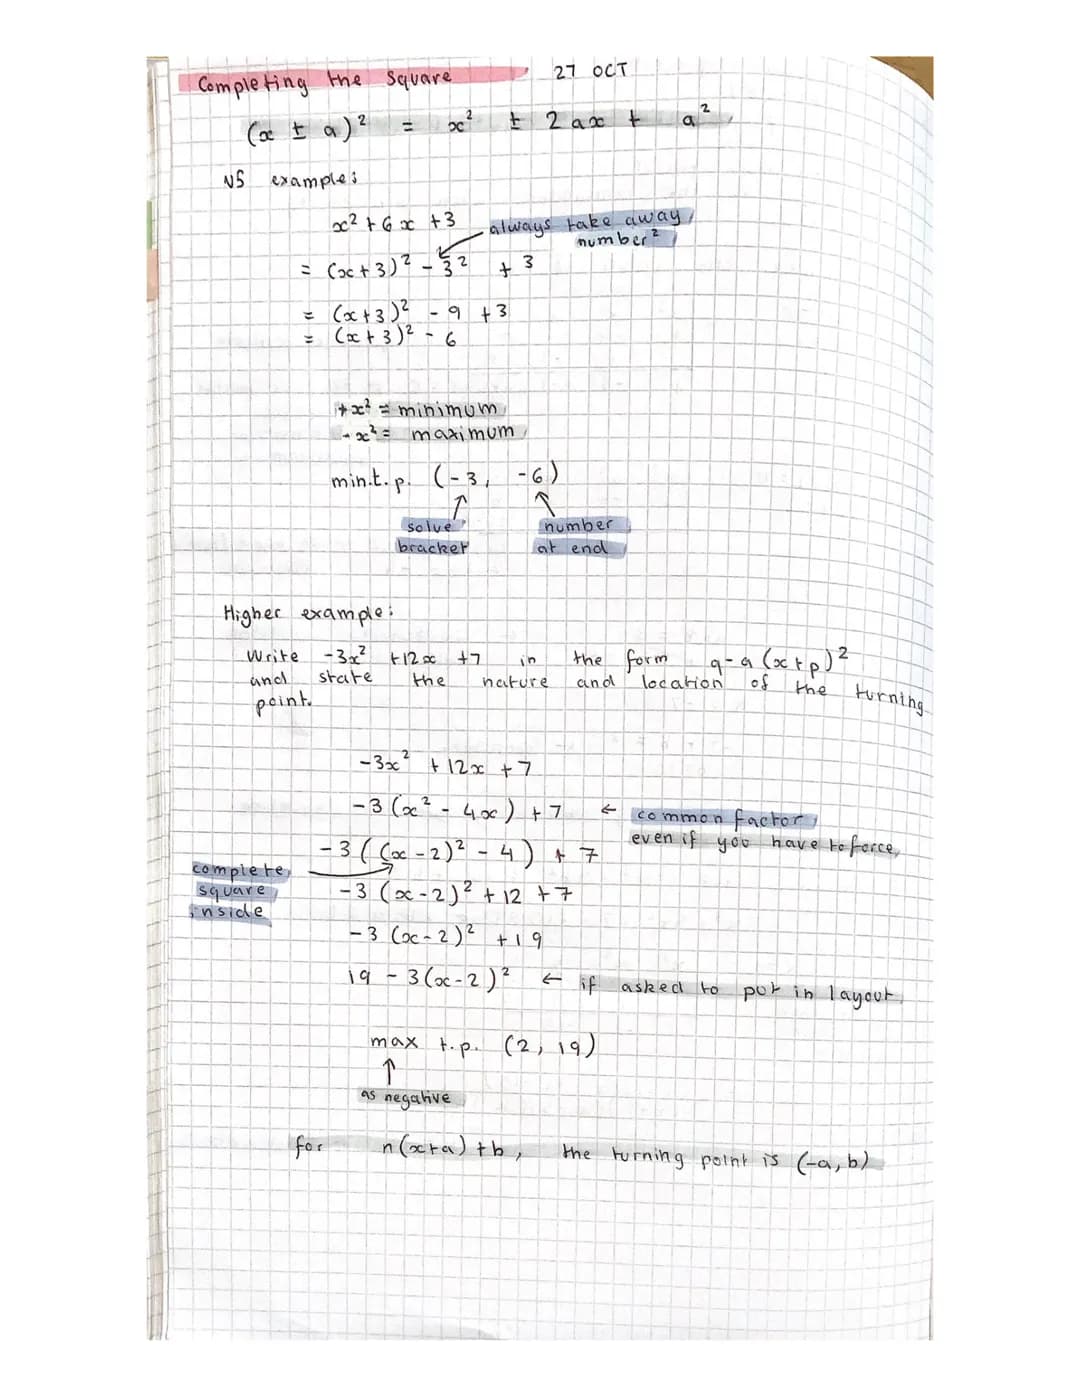 Completing the Square 27 OCT
(x ± a)² = x² ± 2ax + a²
N5 example:
x² + 6x + 3
always take away
number²
= (x+3)² - 3² + 3
= (x+3)² - 9 + 3
= (x+3)² - 6
+x² = minimum
-x² = maximum
min.t.p. (-3, -6)
solve number
bracket at end
Higher example:
Write -3x² +12x +7 in the form q-a(x+p)²
and state the nature and location of the turning
point.
-3x² + 12x + 7
-3(x² - 4x) + 7 ← common factor
even if you have to force
-3((x-2)² - 4) + 7
complete
square
inside
-3(x-2)² + 12 + 7
-3(x-2)² + 19
19 - 3(x-2)² ← if asked to put in layout
max t.p. (2, 19)
↑
as negative
for n(x+a)+b, the turning point is (-a, b)